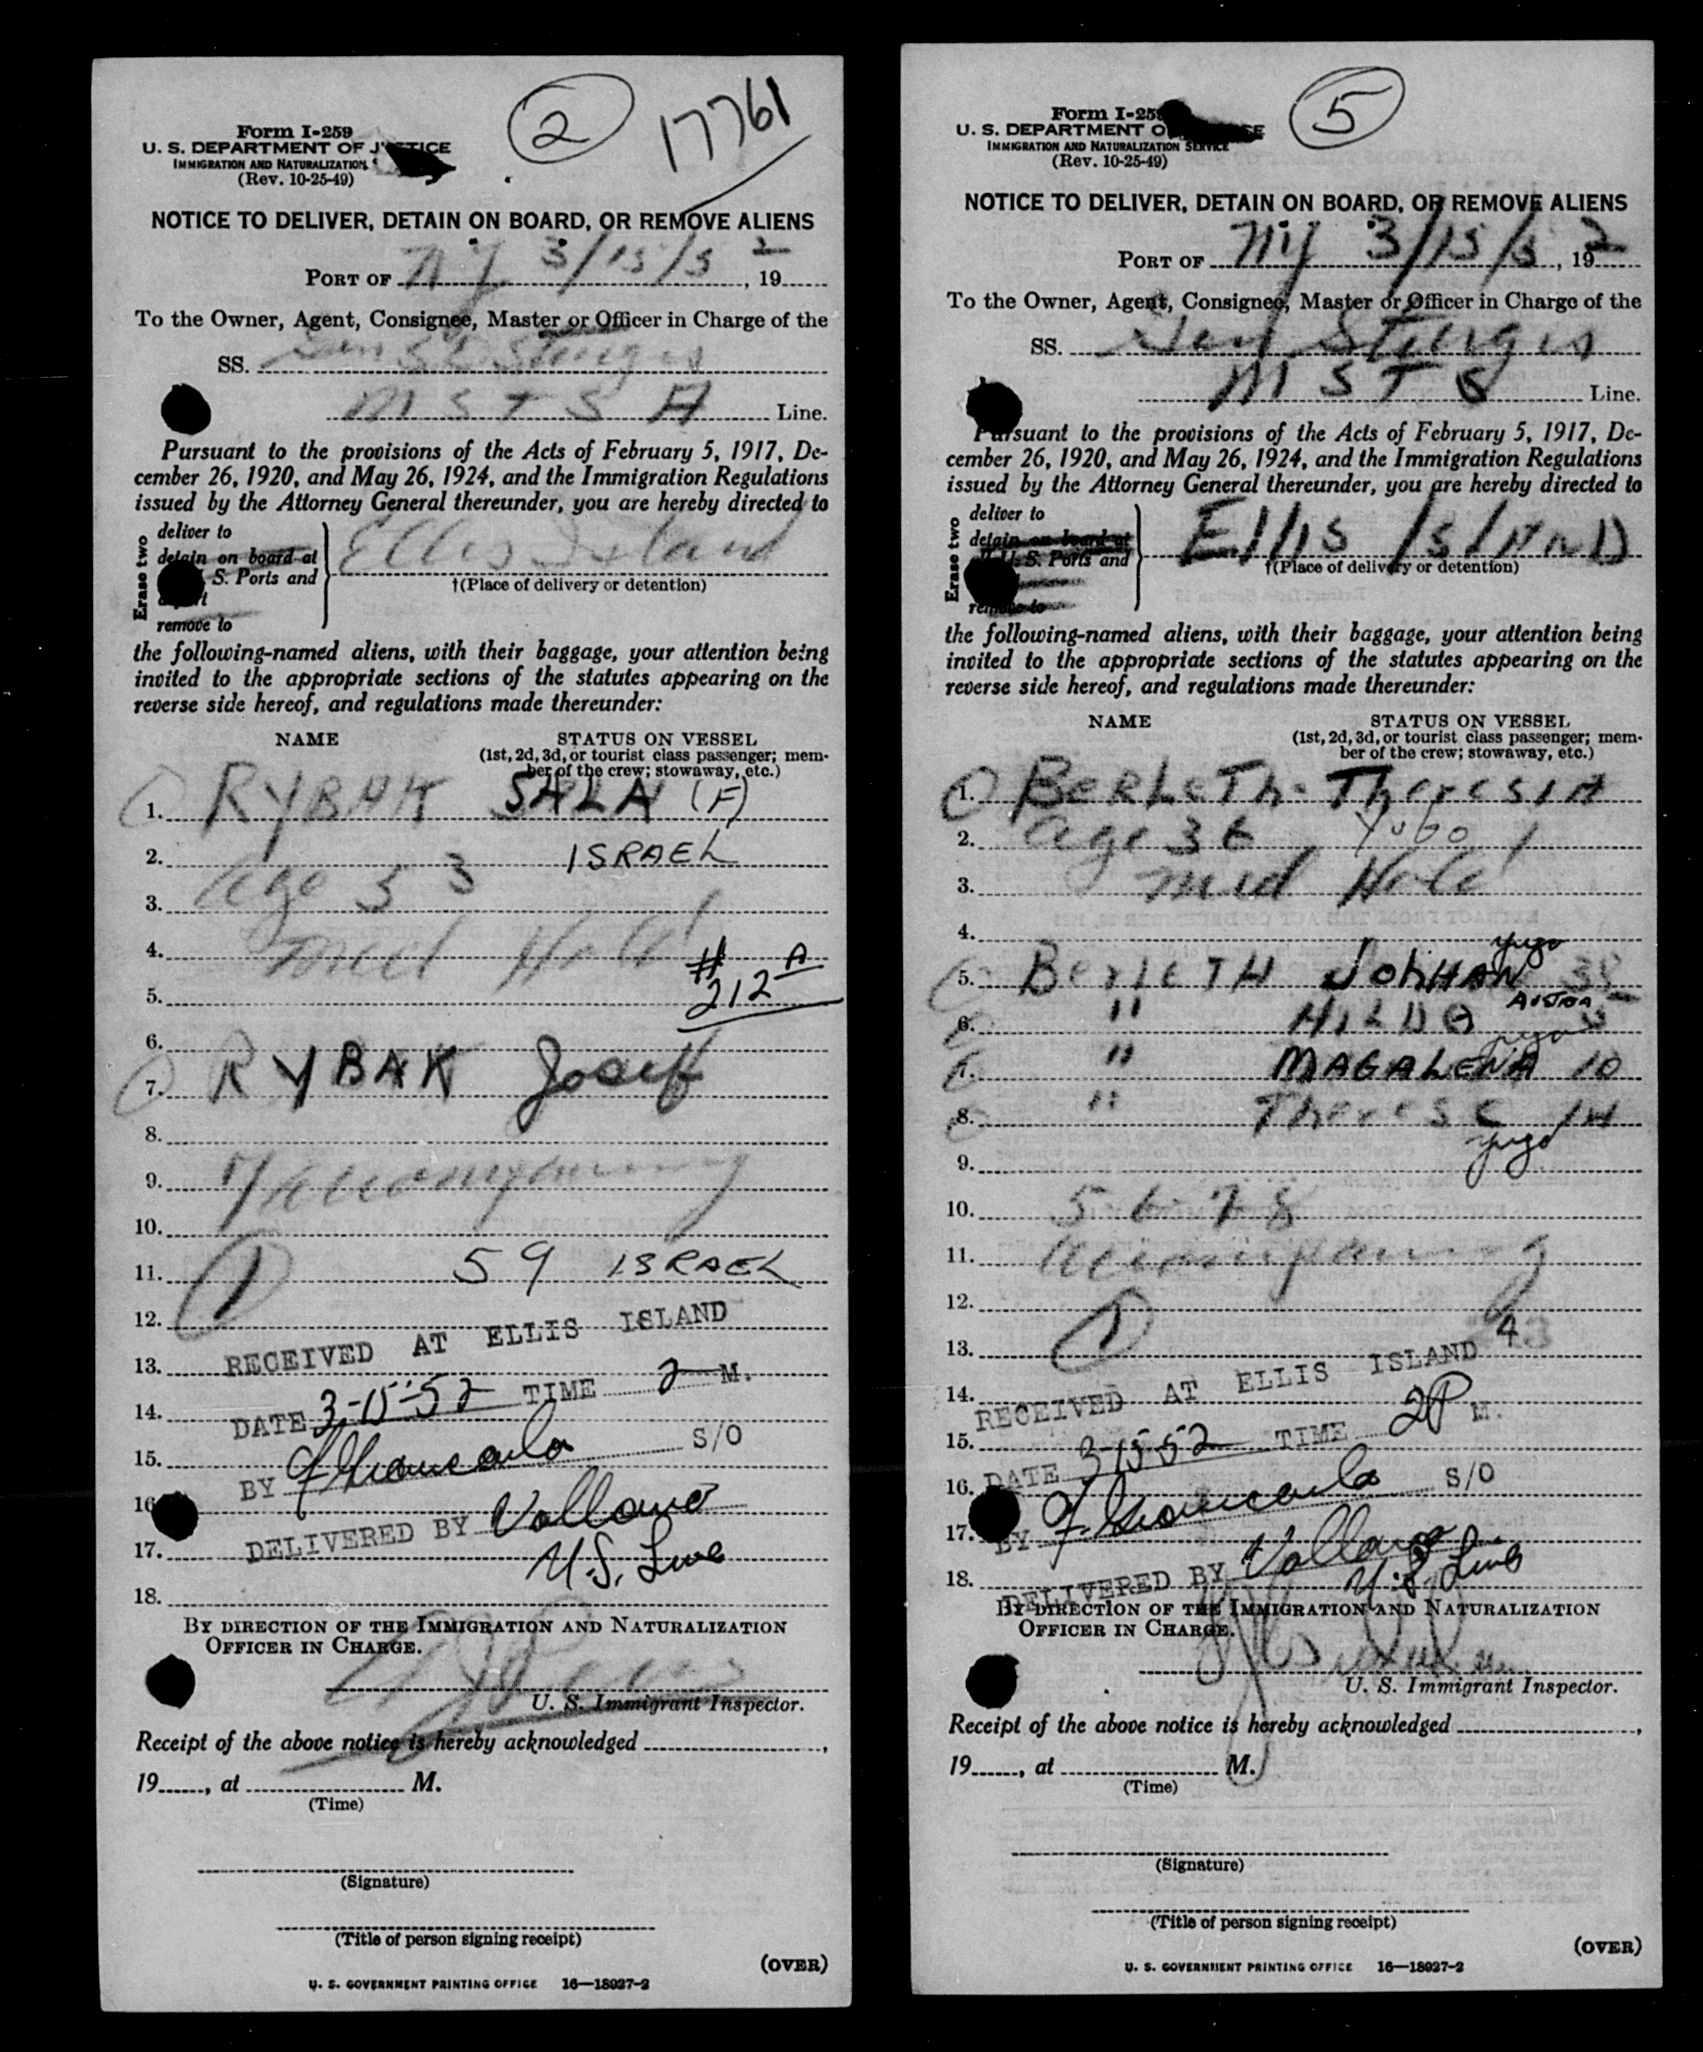 Form I-259
U. S. DEPARTMENT OF JUSTICE
IMMIGRATION AND NATURALIZATION
(Rev. 10-25-49)
2
17761
NOTICE TO DELIVER, DETAIN ON BOARD, OR REMOVE ALIENS
PORT OF NY 3/15/5 2, 19
To the Owner, Agent, Consignee, Master or Officer in Charge of the
SS. Gen S D Sturgis
M S T S A Line.
Pursuant to the provisions of the Acts of February 5, 1917, De-
cember 26, 1920, and May 26, 1924, and the Immigration Regulations
issued by the Attorney General thereunder, you are hereby directed to
Erase two
deliver to
detain on board at
S. Ports and
remove to
Ellis Island
†(Place of delivery or detention)
the following-named aliens, with their baggage, your attention being
invited to the appropriate sections of the statutes appearing on the
reverse side hereof, and regulations made thereunder:
NAME STATUS ON VESSEL
(1st, 2d, 3d, or tourist class passenger; mem-
ber of the crew; stowaway, etc.)
1. RYBAK SALA (F)
2. ISRAEL
3. age 53
4. med Hold
# 212 A
5.
6.
7. RYBAK Josef
8.
9. 7/ accompanying
10.
11. 1 59 ISRAEL
12.
RECEIVED AT ELLIS ISLAND
13.
DATE 3-15-52 TIME 2 M.
14.
15.
BY S/O
16
DELIVERED BY Vollano
17. U.S. Line
18.
BY DIRECTION OF THE IMMIGRATION AND NATURALIZATION
OFFICER IN CHARGE.
U. S. Immigrant Inspector.
Receipt of the above notice is hereby acknowledged ,
19 , at M.
(Time)
(Signature)
(Title of person signing receipt)
(OVER)
U. S. GOVERNMENT PRINTING OFFICE 16—18027-2
Form I-259
U. S. DEPARTMENT OF
IMMIGRATION AND NATURALIZATION SERVICE
(Rev. 10-25-49)
5
NOTICE TO DELIVER, DETAIN ON BOARD, OR REMOVE ALIENS
PORT OF NY 3/15/5, 192
To the Owner, Agent, Consignee, Master or Officer in Charge of the
SS. Gen Sturgis
M S T S Line.
Pursuant to the provisions of the Acts of February 5, 1917, De-
cember 26, 1920, and May 26, 1924, and the Immigration Regulations
issued by the Attorney General thereunder, you are hereby directed to
Erase two
deliver to
detain on board at
U. S. Ports and
remove to
Ellis Island
†(Place of delivery or detention)
the following-named aliens, with their baggage, your attention being
invited to the appropriate sections of the statutes appearing on the
reverse side hereof, and regulations made thereunder:
NAME STATUS ON VESSEL
(1st, 2d, 3d, or tourist class passenger; mem-
ber of the crew; stowaway, etc.)
1. BERLETH- THERESIA
2. age 36 Yugo
3. med Hold
4. yugo
5. BERLETH JOHHAN 38
Austria
6. " HILDA 5
yugo
7. " MAGALENA 10
8. " THERESE 14
9. yugo
10. 5 6 7 8
11. accompanying
12.
1
4
13.
RECEIVED AT ELLIS ISLAND
14.
15.
DATE 3-15-52 TIME 2P M.
16.
BY S/O
17.
DELIVERED BY Vollano
18. U.S. Line
BY DIRECTION OF THE IMMIGRATION AND NATURALIZATION
OFFICER IN CHARGE.
U. S. Immigrant Inspector.
Receipt of the above notice is hereby acknowledged ,
19 , at M.
(Time)
(Signature)
(Title of person signing receipt)
(OVER)
U. S. GOVERNMENT PRINTING OFFICE 16—18027-2